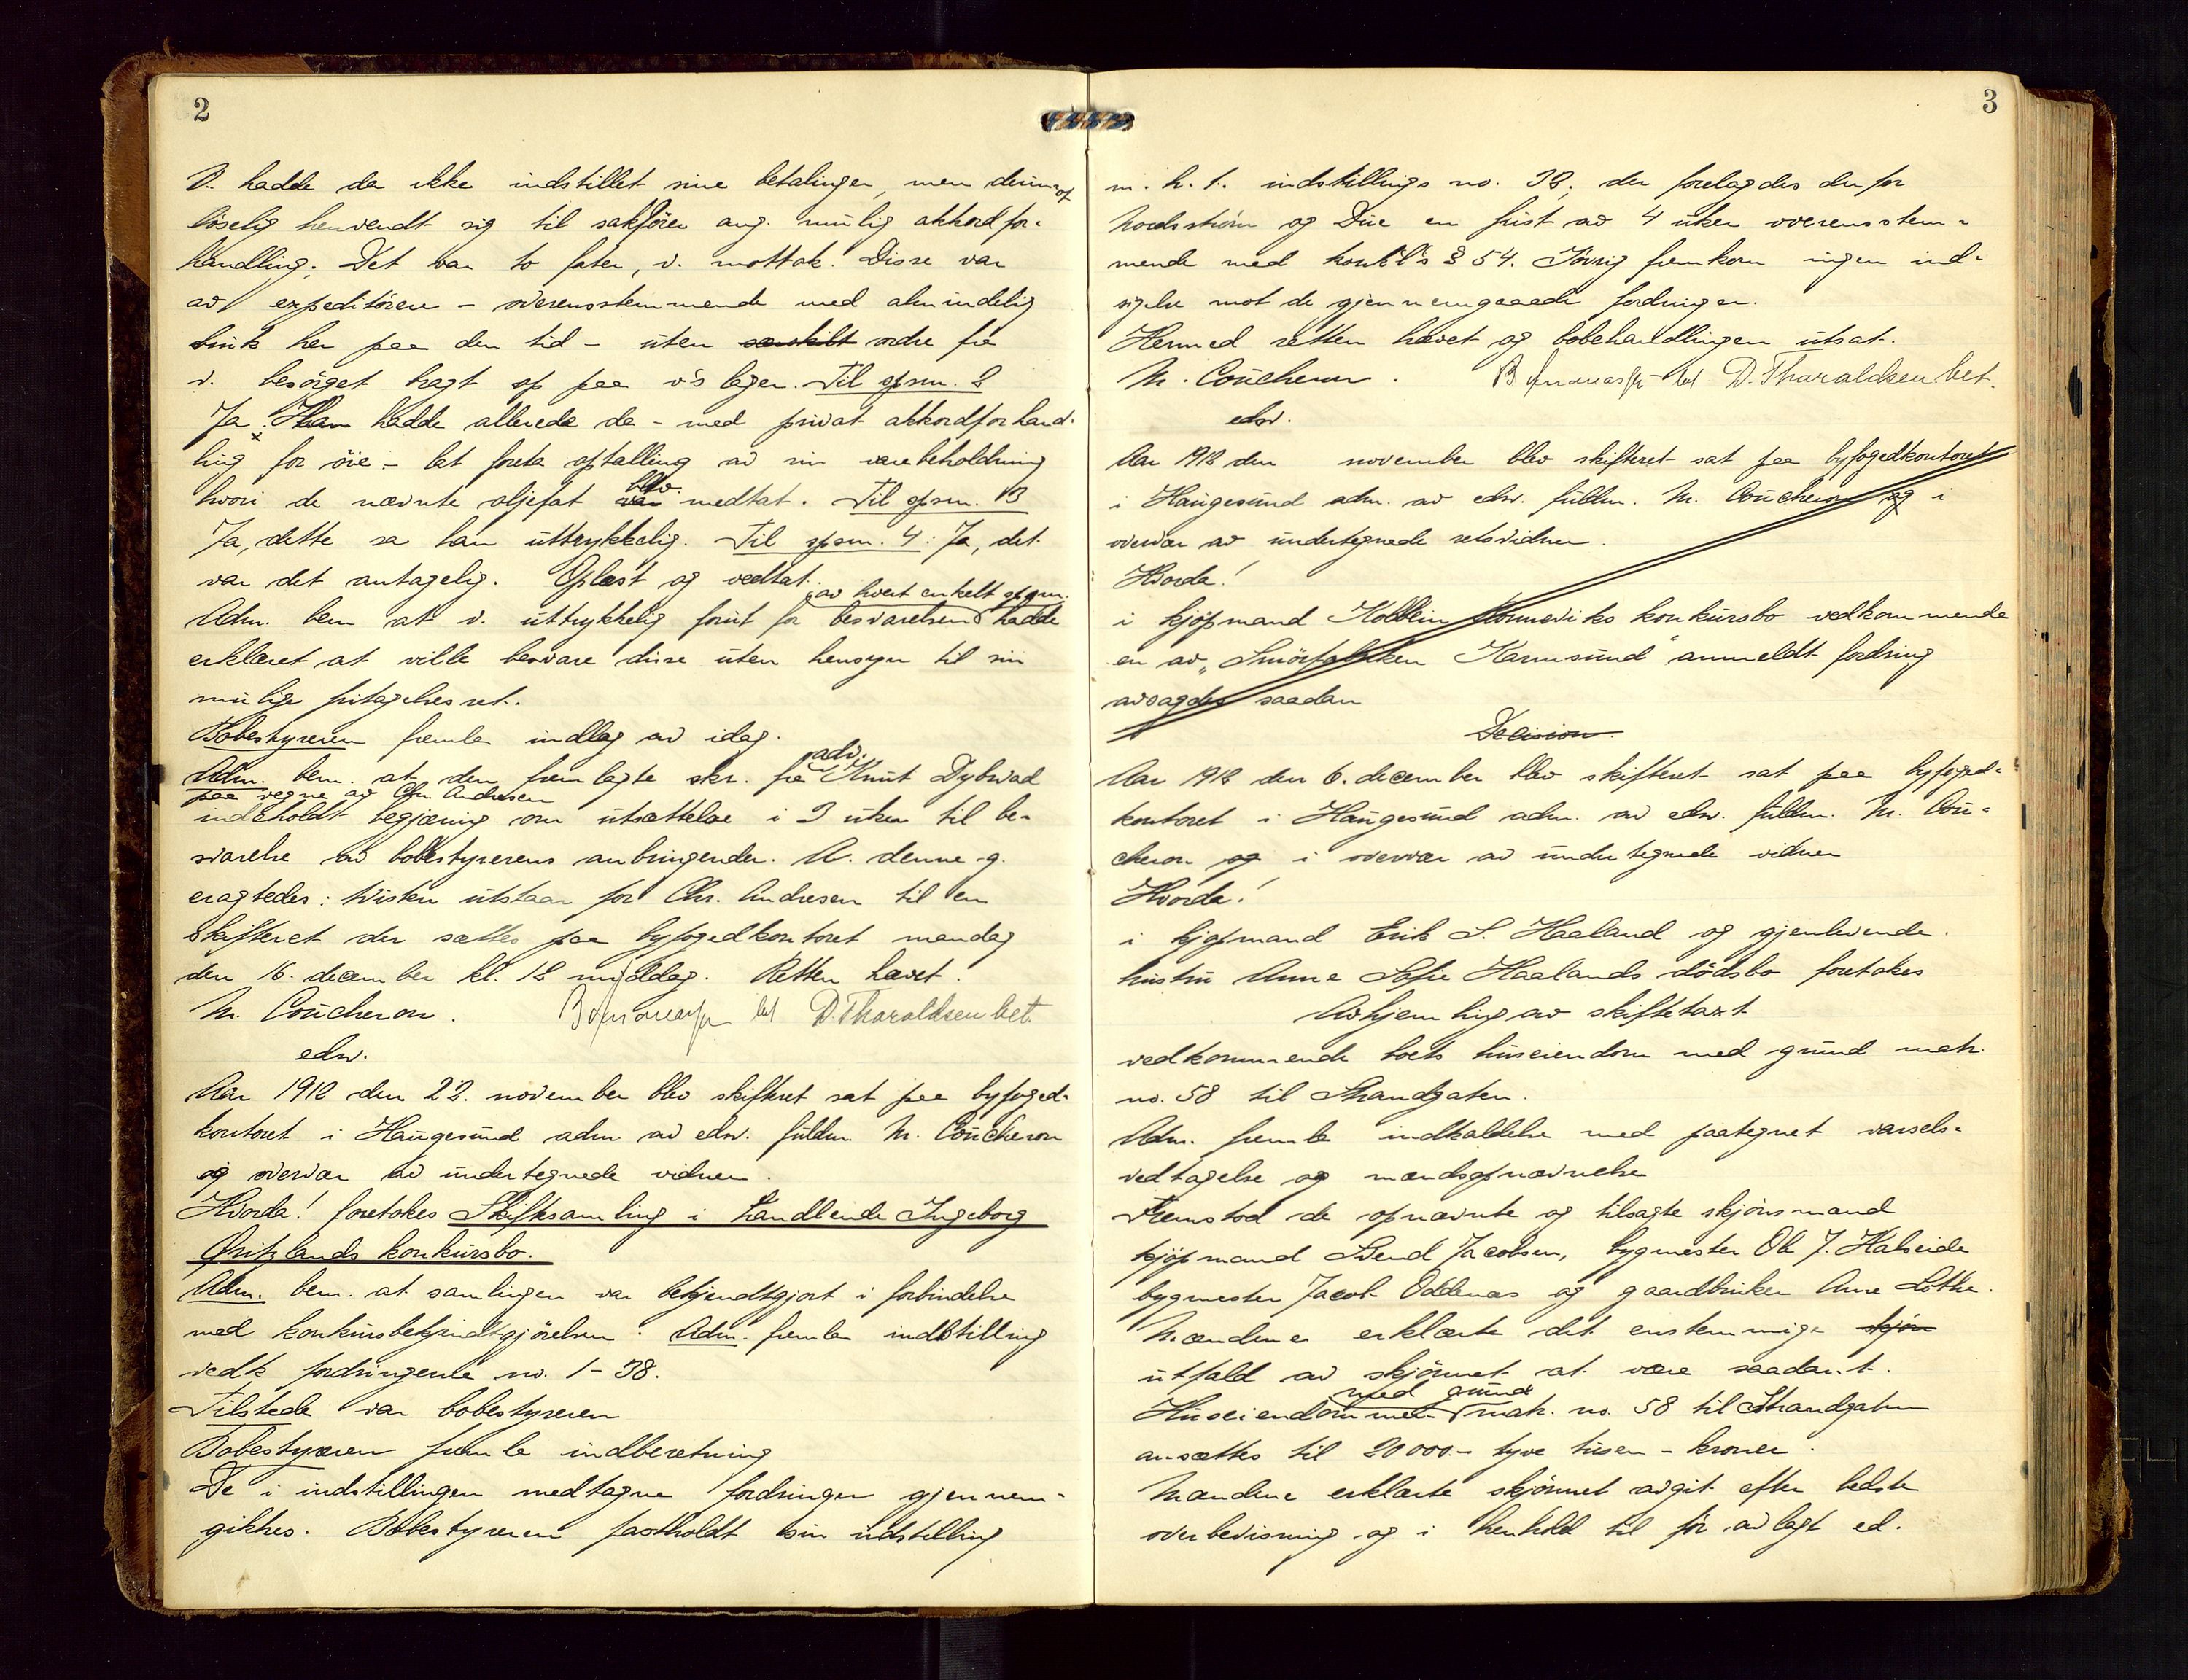 2
V. hadde da ikke indstillet sine betalinger, men derimot
löselig henvendt sig til sakfører ang. mulig akkordfor-
handling. Det var to fater, v. mottok. Disse var
av expeditören – overensstemmende med almindelig
bruk her paa den tid – uten særskilt ordre fra
v. besörget bragt op paa v's lager. Til spsm. 2
Ja. Han hadde allerede da – med privat akkordforhand-
ling for öie – lat foreta optælling av sin varebeholdning
hvori de nævnte oljefat var blev medtat. Til spsm. 3
Ja, dette sa han uttrykkelig. Til spsm. 4: Ja, det
var det antagelig. Oplæst og vedtat.
av hvert enkelt spsm.
Adm. bem at v. uttrykkelig forut for besvarelsen hadde
erklæret at ville besvare disse uten hensyn til sin
mulige fritagelsesret.
Bobestyreren fremla indlæg av idag.
Adm. bem. at den fremlagte skr. fra adv. Knut Dybwad
paa vegne av Chr. Andresen
indeholdt begjæring om utsættelse i 3 uker til be-
svarelse av bobestyrerens anbringender. Av denne g.
eragtedes: tvisten utstaar for Chr. Andresen til en
skifteret der sættes paa byfogedkontoret mandag
den 16. december kl. 12 middag. Retten hævet.
N. Coucheron. bet D. Tharaldsen bet.
edsv.
Aar 1912 den 22. november blev skifteret sat paa byfoged-
kontoret i Haugesund adm av edsv. fuldm N. Coucheron
og overvær av undertegnede vidner.
Hvorda! foretokes Skiftesamling i handlende Ingeborg
Gritzlands konkursbo.
Adm. bem. at samlingen var bekjendtgjort i forbindelse
med konkursbekjendtgjörelsen. Adm. fremla indstilling
vedk fordringerne no. 1 – 38.
Tilstede var bobestyreren
Bobestyreren fremla indberetning
De i indstillingen medtagne fordringer gjennem-
gikkes. Bobestyreren fastholdt sin indstilling
3
m. h. t. indstillings no. 38, der forelagdes derfor
Nordström og Due en frist av 4 uker overensstem-
mende med konkl's § 54. Iövrig fremkom ingen ind-
sigelse mot de gjennemgaaede fordringer.
Hermed retten hævet og bobehandlingen utsat.
N. Coucheron. bet D. Tharaldsen bet.
edsv.
Aar 1912 den november blev skifteret sat paa byfogedkontoret
i Haugesund adm. av edsv. fuldm. N. Coucheron og i
overvær av undertegnede retsvidner.
Hvorda!
i kjöpmand Kolbein konkursbo vedkommende
en av „Smörfabriken Karmsund" anmeldt fordring
avsagdes saadan
Decision.
Aar 1912 den 6. december blev skifteret sat paa byfoged-
kontoret i Haugesund adm. av edsv. fuldm. N. Cou-
cheron og i overvær av undertegnede vidner
Hvorda!
i kjöpmand Erik S. Haaland og gjenlevende
hustru Anne Sofie Haalands dödsbo foretokes
Avhjemling av skiftetaxt
vedkommende boets huseiendom med grund matr.
no. 58 til Strandgaten.
Adm. fremla indkaldelse med paategnet varsels-
vedtagelse og mændsopnævnelse
Fremstod de opnævnte og tilsagte skjönsmænd
kjöpmand Svend Jacobsen, bygmester Ole J. Halseide
bygmester Jacob Oddenæs og gaardbruker Arne Lothe.
Mændene erklærte det enstemmige skjön
utfald av skjönnet at være saadant.
Huseiendommen med grund matr. no. 58 til Strandgaten
ansættes til 20000.– tyve tusen – kroner.
Mændene erklærte skjönnet avgit efter bedste
overbevisning og i henhold til för avlagt ed.